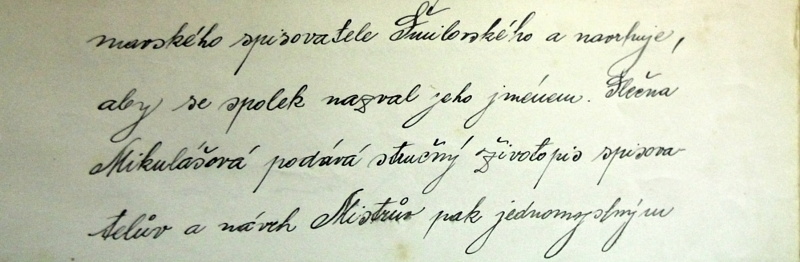 mavského spisovatele Šmilovského a navrhuje,
aby se spolek nazval jeho jménem. Slečna
Mikulášová podává stručný životopis spisova-
telův a návrh Mistrův pak jednomyslným